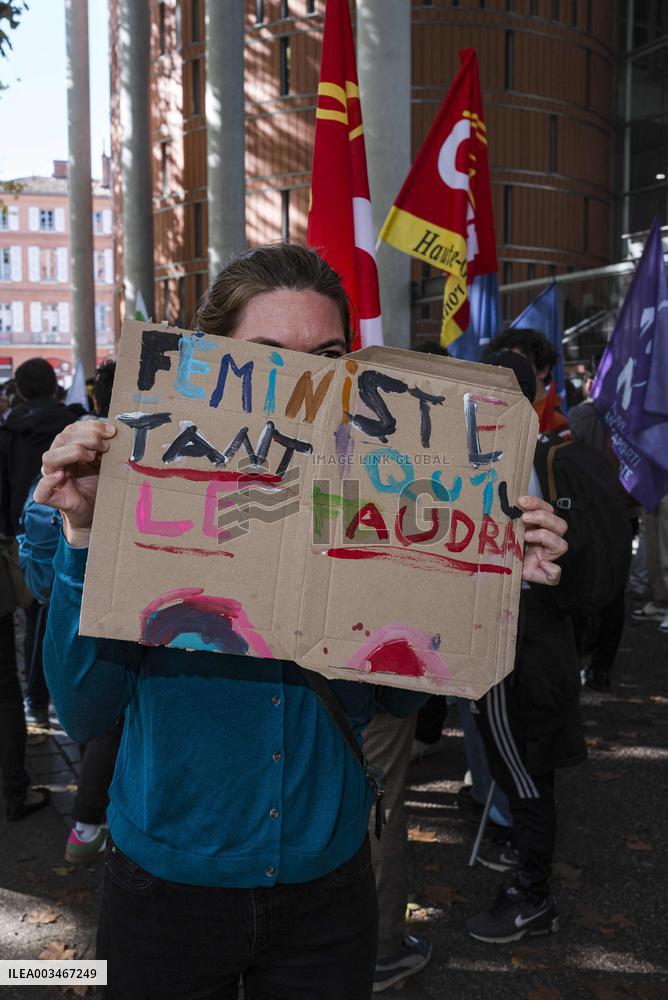 FÉMiNiSTE
TANT QU'iL
LE FAUDRA
Haute-
IMAGE LINK GLOBAL
ILG
ILEA003467249